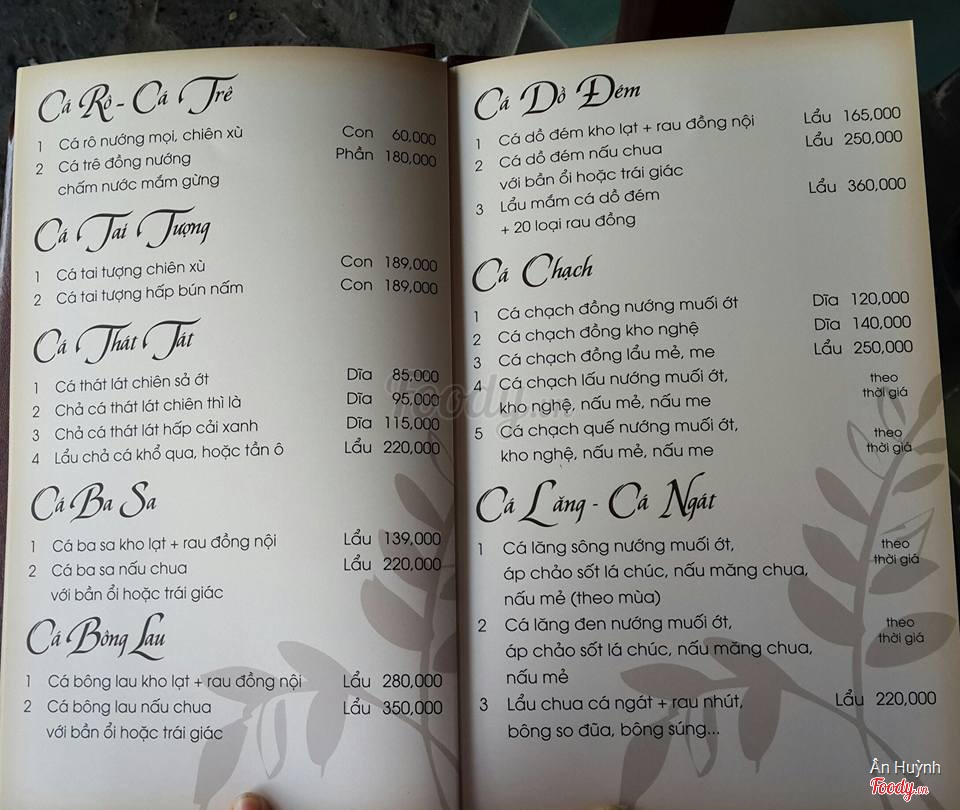 Cá Rô - Cá Trê
1 Cá rô nướng mọi, chiên xù Con 60,000
2 Cá trê đồng nướng Phần 180,000
chấm nước mắm gừng
Cá Tai Tượng
1 Cá tai tượng chiên xù Con 189,000
2 Cá tai tượng hấp bún nấm Con 189,000
Cá Thát Tát
1 Cá thát lát chiên sả ớt Dĩa 85,000
2 Chả cá thát lát chiên thì là Dĩa 95,000
3 Chả cá thát lát hấp cải xanh Dĩa 115,000
4 Lẩu chả cá khổ qua, hoặc tần ô Lẩu 220,000
Cá Ba Sa
1 Cá ba sa kho lạt + rau đồng nội Lẩu 139,000
2 Cá ba sa nấu chua Lẩu 220,000
với bần ổi hoặc trái giác
Cá Bông Lau
1 Cá bông lau kho lạt + rau đồng nội Lẩu 280,000
2 Cá bông lau nấu chua Lẩu 350,000
với bần ổi hoặc trái giác
Cá Dồ Đém
1 Cá dồ đém kho lạt + rau đồng nội Lẩu 165,000
2 Cá dồ đém nấu chua Lẩu 250,000
với bần ổi hoặc trái giác
3 Lẩu mắm cá dồ đém Lẩu 360,000
+ 20 loại rau đồng
Cá Chạch
1 Cá chạch đồng nướng muối ớt Dĩa 120,000
2 Cá chạch đồng kho nghệ Dĩa 140,000
3 Cá chạch đồng lẩu mẻ, me Lẩu 250,000
4 Cá chạch lấu nướng muối ớt, theo
kho nghệ, nấu mẻ, nấu me thời giá
5 Cá chạch quế nướng muối ớt, theo
kho nghệ, nấu mẻ, nấu me thời giá
Cá Lăng - Cá Ngát
1 Cá lăng sông nướng muối ớt, theo
áp chảo sốt lá chúc, nấu măng chua, thời giá
nấu mẻ (theo mùa)
2 Cá lăng đen nướng muối ớt, theo
áp chảo sốt lá chúc, nấu măng chua, thời giá
nấu mẻ
3 Lẩu chua cá ngát + rau nhút, Lẩu 220,000
bông so đũa, bông súng...
Foody.vn
Ân Huỳnh
Foody.vn